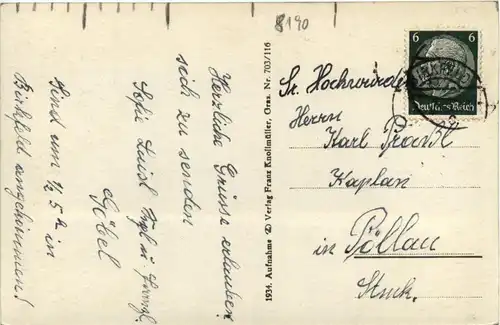 8190
Herzliche Grüsse erlauben
sich zu senden
Sofie Luisl
Göbel
Sind um 1/2 5 h in
Birkfeld angekommen!
1934. Aufnahme u. Verlag Franz Knollmüller, Graz. Nr. 703/116
6 6
Deutsches Reich
Sr. Hochwürden
Herrn
Karl
Kaplan
in Pöllau
Stmk.